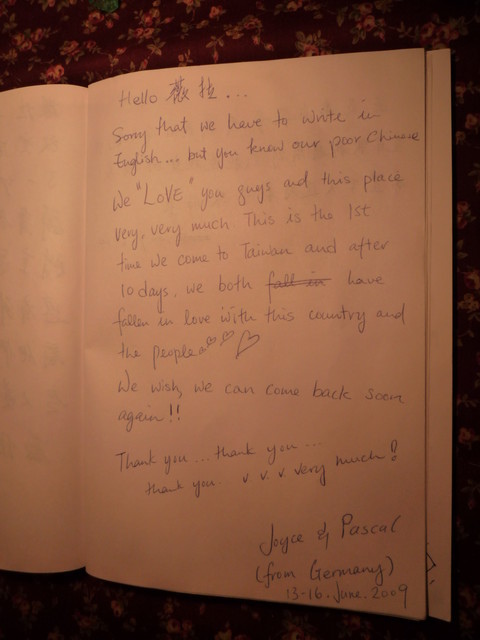 Hello 薇拉...
Sorry that we have to write in
English... but you know our poor Chinese
We "LOVE" you guys and this place
very, very much This is the 1st
time we come to Taiwan and after
10 days, we both fall in have
fallen in love with this country and
the people
We wish, we can come back soon
again!!
Thank you ... thank you ...
thank you. v. v. v. very much!
Joyce & Pascal
(from Germany)
13-16. June. 2009